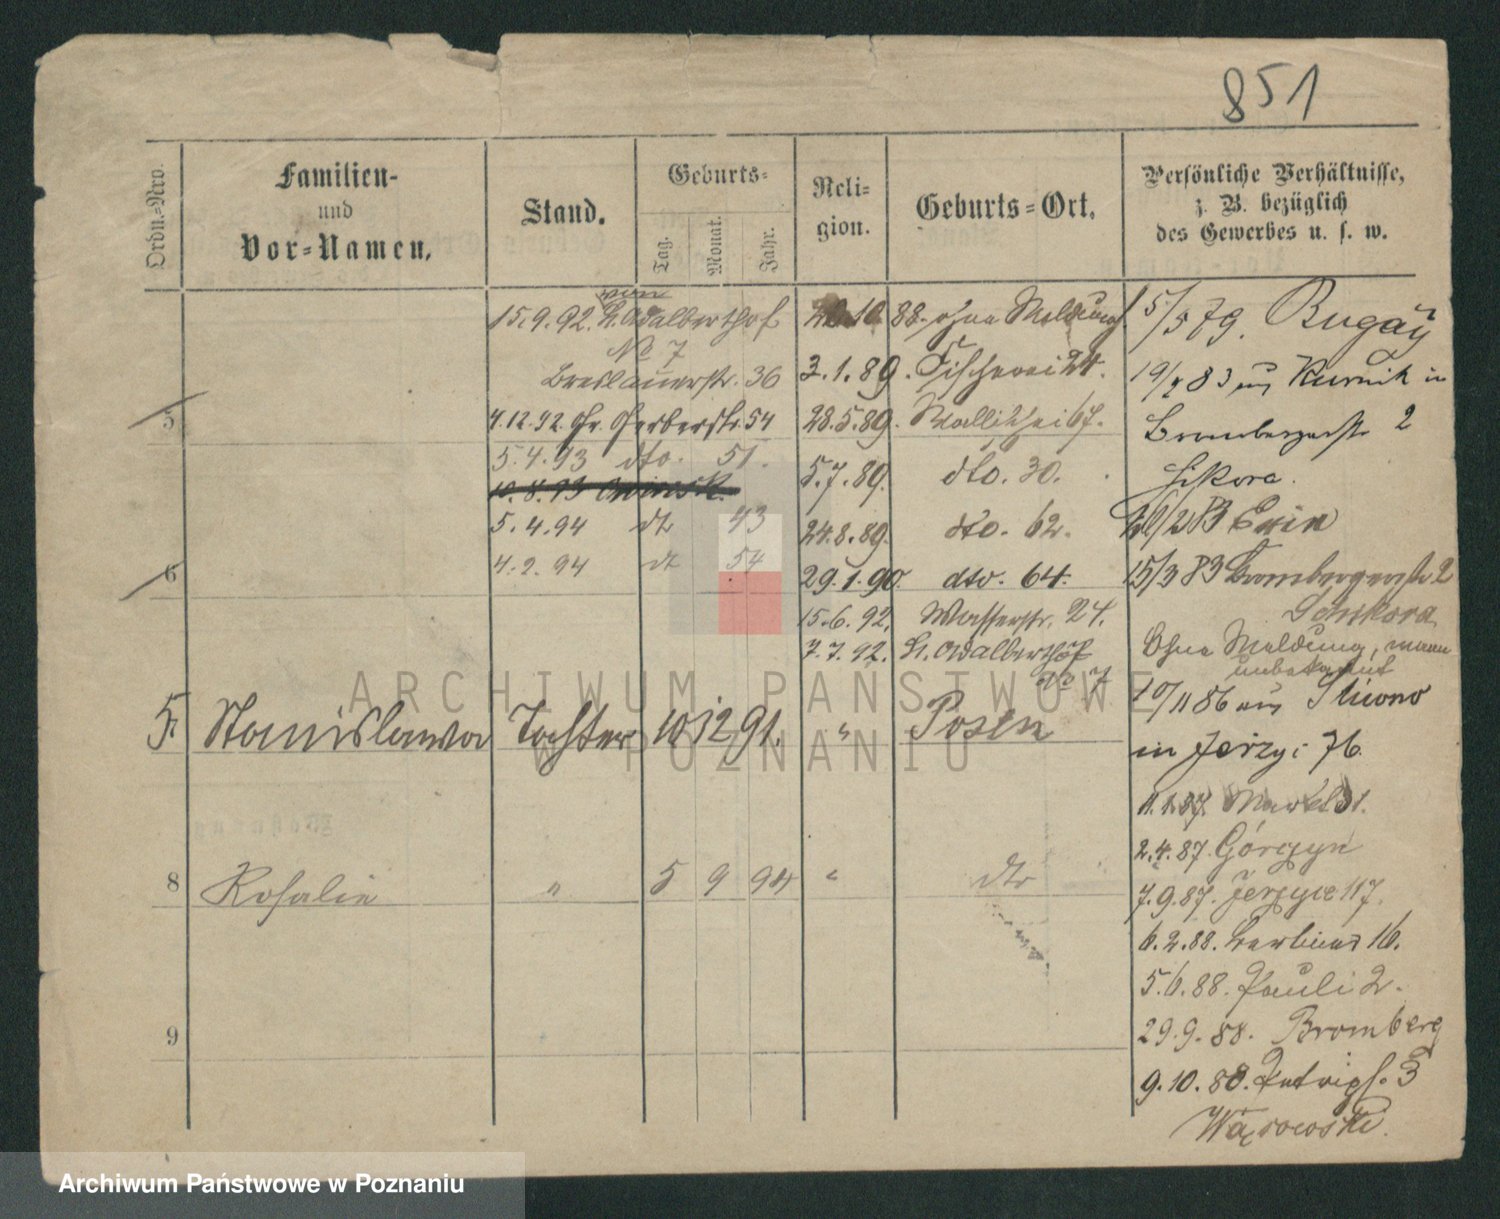 851
Ordn.-Nro.
Familien-
und
Vor-Namen.
Stand.
Geburts-
Tag.
Monat.
Jahr.
Reli-
gion.
Geburts-Ort.
Persönliche Verhältnisse,
z. B. bezüglich
des Gewerbes u. s. w.
von
15.9.92. St. Adalberthof
No 7
Breslauerstr. 36
4.12.92. Gr. Gerberstr. 54
5.4.93 dto. 51.
10.8.93
5.4.94 dt 43
4.2.94 dt 54
20.10.88. ohne Meldung.
3.1.89. Fischerei 24.
28.5.89. Wallischei 67.
5.7.89. dto. 30.
24.8.89. dto. 62.
29.1.90. dto. 64.
15.6.92. Wasserstr. 24.
7.7.92. St. Adalberthof
No 7
5
6
5. Stanislawa Tochter 10 12 91. " Posen
8 Rosalie " 5 9 94 " dto
9
15/5 79. Bugaj
19/2 83 aus Kurnik in
Brombergerstr 2
Sikora.
15/3 83 Brombergerstr 2
Sikora
Ohne Meldung, wann
unbekannt
10/11 86 aus
in Jerzyc 76.
11.1.87. Markt 81.
2.4.87. Górczyn
7.9.87. Jerzyce 117.
6.2.88. Berliner 16.
5.6.88. Pauli 2.
29.9.88. Bromberg
9.10.88. 3
Wąsowski.
ARCHIWUM PAŃSTWOWE
W POZNANIU
Archiwum Państwowe w Poznaniu